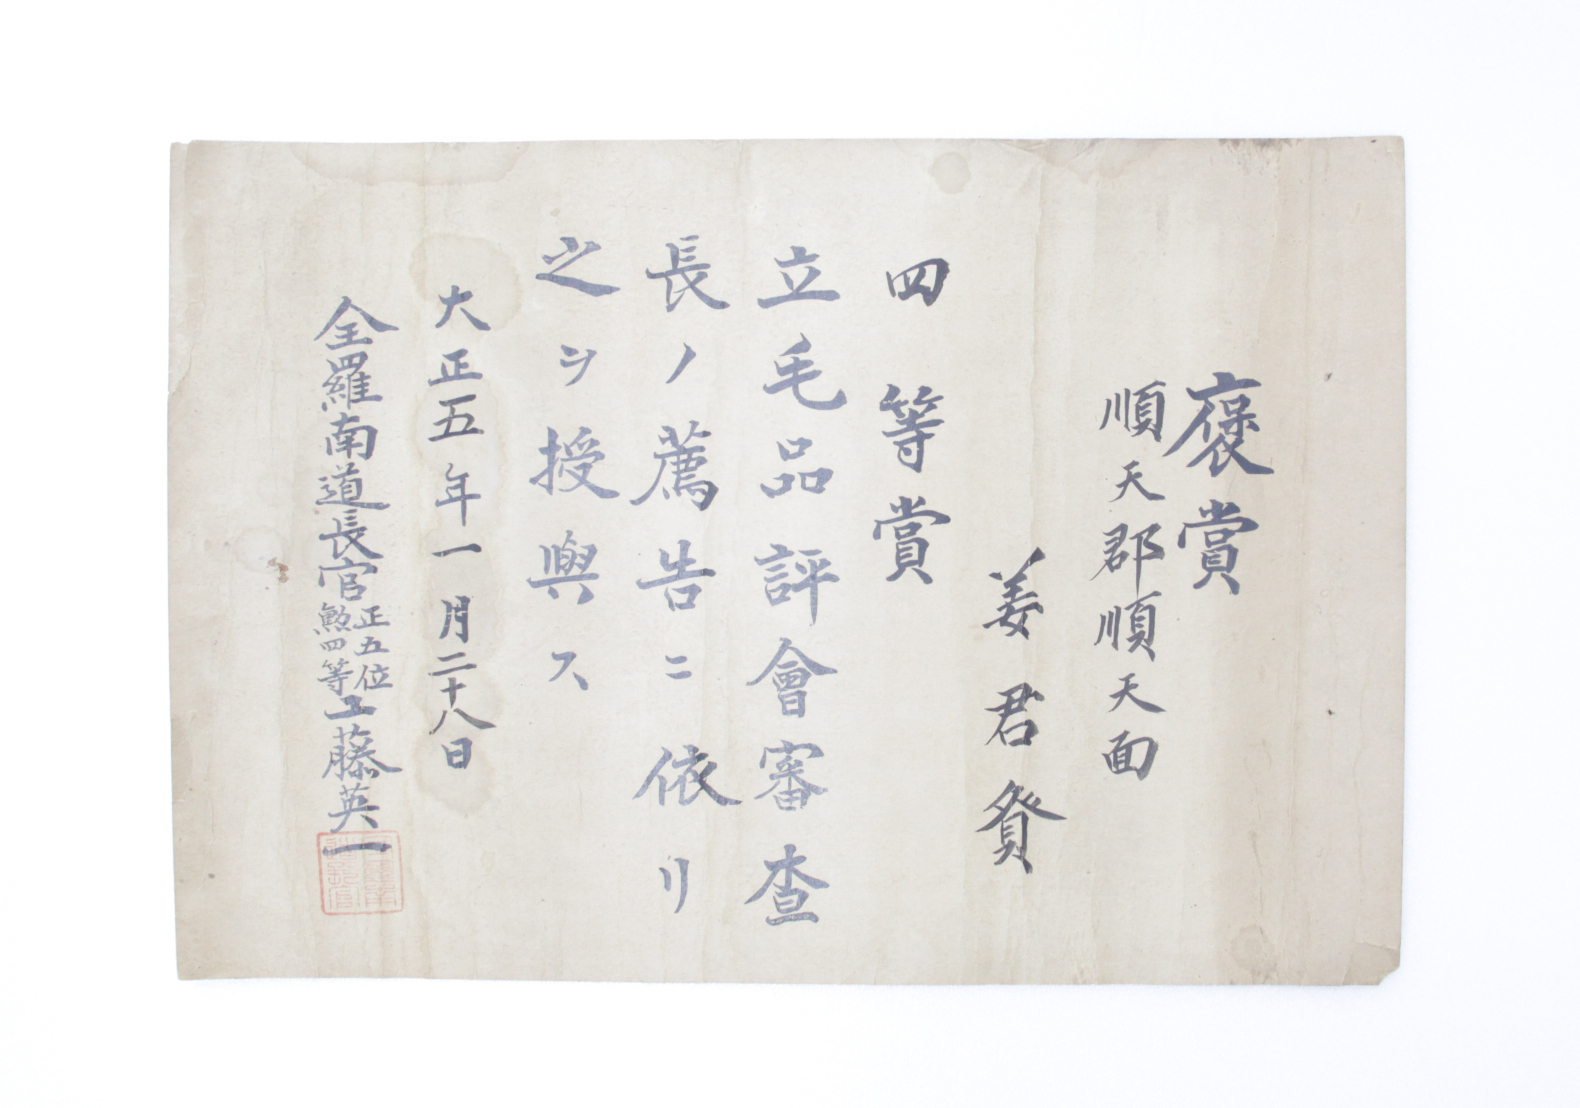 褒賞
順天郡順天面
姜君
四等賞
立毛品評會審查
長ノ薦告ニ依リ
之ヲ授與ス
大正五年一月二十八日
全羅南道長官正五位勲四等工藤英一